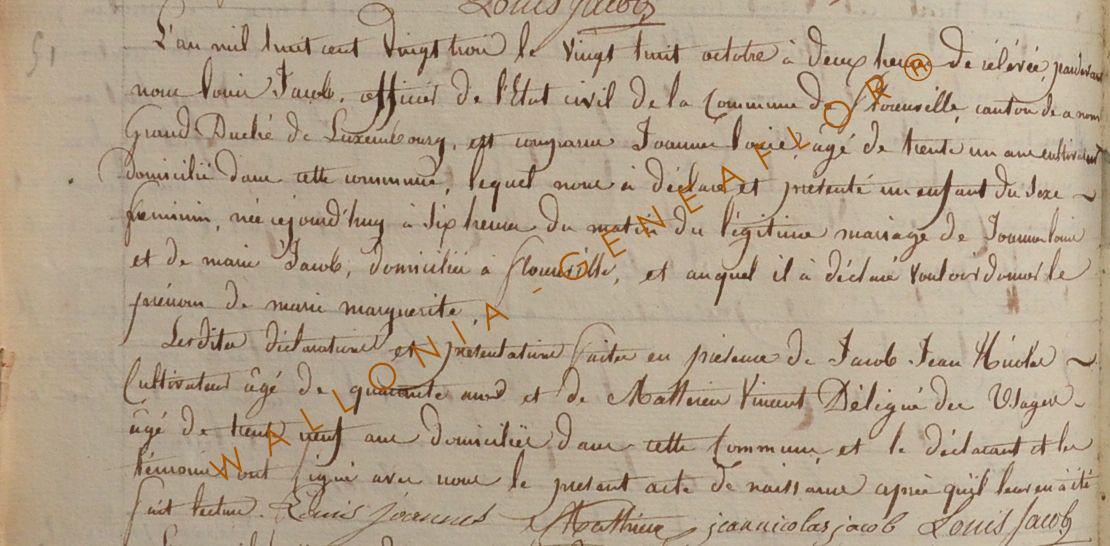 Louis Jacob
51
L'an mil huit cent vingt trois le vingt huit octobre à deux heures de rélévée, pardevant
nous Louis Jacob, officier de l'Etat civil de la Commune de florenville, canton de
Grand Duché de Luxembourg, est comparu Joannes Louis, âgé de trente un ans cultivateur
domicilié dans cette commune, lequel nous à déclaré et présenté un enfant du Sexe
feminin, née cejourd'huy à six heures du matin du légitime mariage de Joannes Louis
et de marie Jacob, domiciliés à florenville, et auquel il à déclaré vouloir donner le
prénom de marie marguerite.
Lesdites déclarations et présentations faites en présence de Jacob Jean Nicolas
Cultivateur âgé de quarante ans et de Mathieu Vincent Déligné des Usages
âgé de trente neuf ans domiciliés dans cette Commune, et le déclarant et les
témoins ont signé avec nous le présent acte de naissance après qu'il leur en à été
fait lecture. Louis joannes Matthieu jean nicolas jacob Louis Jacob
WALLONIA - GENEAFLOR®